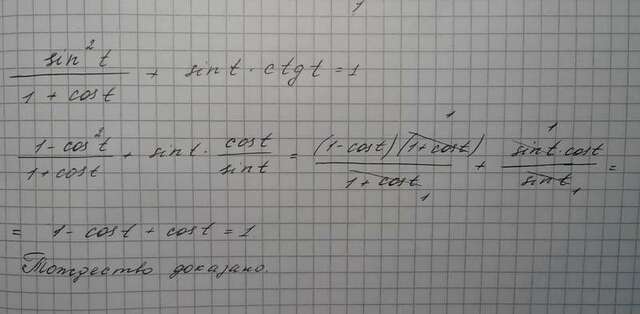 sin²t / (1 + cost) + sint · ctgt = 1
(1 - cos²t) / (1 + cost) + sint · cost / sint = (1 - cost)(1 + cost) / (1 + cost) + sint · cost / sint =
= 1 - cost + cost = 1
Тождество доказано.